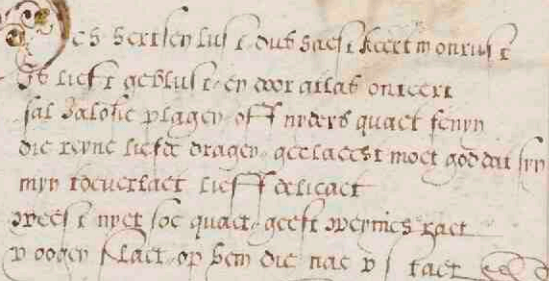 Des herten lust dus haest keert in onrust
Is lieft geblust en door atlas onteert
sal Jalosie plagen off nyders quaet fenyn
die reyne liefde dragen geclaecst moet god dat syn
myn toeverlaet lieff delicaet
weest nyet soe quaet geeft weynich raet
v oogen slaet op hem die nae v staet